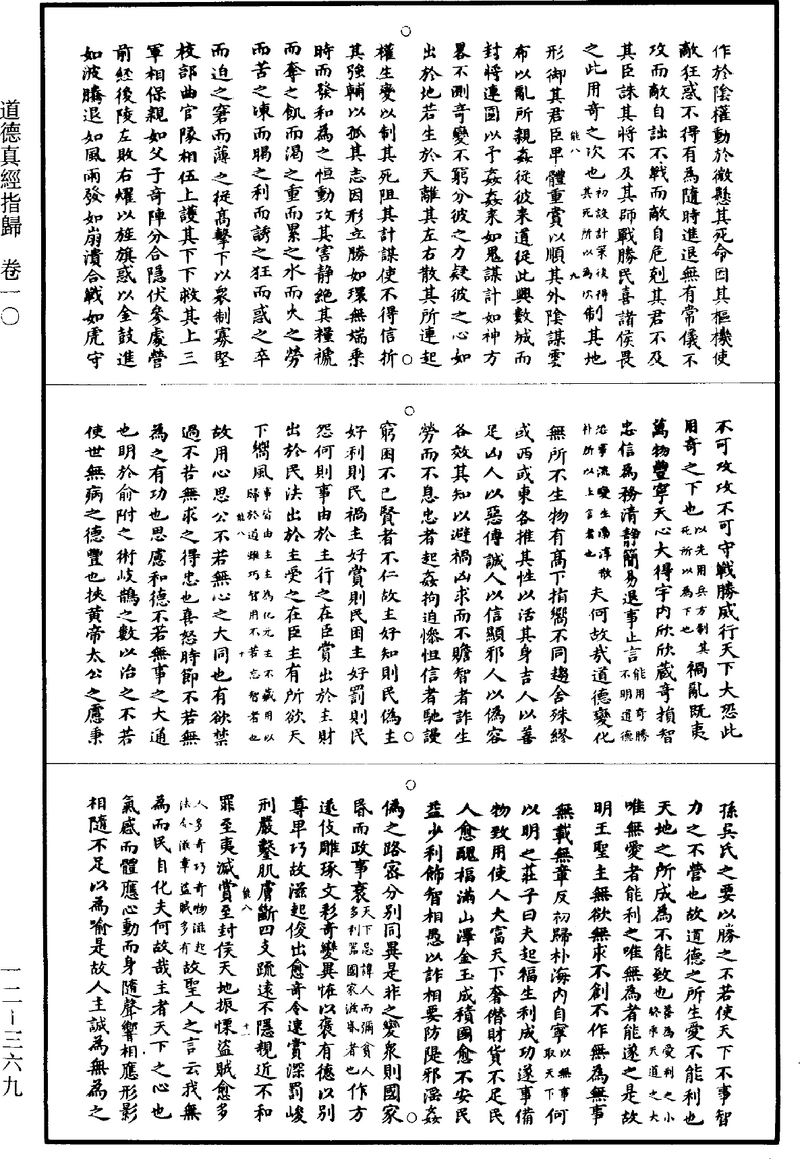 作於陰權動於微懸其死命因其樞機使
敵狂惑不得有為隨時進退無有常儀不
攻而敵自詘不戰而敵自危剋其君不及
其臣誅其將不及其師戰勝民喜諸侯畏
之此用奇之次也初設計策後得制其死所以為次制其地
能八
九
形御其君臣卑體重賞以順其外陰謀雲
布以亂所親姦從彼來道從此興數城而
封將連國以予姦姦來如鬼謀計如神方
畧不測奇變不窮分彼之力疑彼之心如
出於地若生於天離其左右散其所連起
權生變以制其死阻其計謀使不得信折
其強輔以孤其志因形立勝如環無端乘
時而發和為之恒動攻其害靜絕其糧褫
而奪之飢而渴之重而累之水而火之勞
而苦之凍而暍之利而誘之狂而惑之卒
而迫之窘而薄之從高擊下以衆制寡堅
校部曲官隊相伍上護其下下救其上三
軍相保親如父子奇陣分合隱伏參處營
前經後陵左敗右燿以旌旗惑以金鼓進
如波騰退如風雨發如崩潰合戰如虎守
不可攻攻不可守戰勝威行天下大恐此
用奇之下也以先用兵方制其死所以為下也禍亂既夷
萬物豐寧天心大得宇內欣欣藏奇損智
忠信為務清靜簡易退事止言能用奇勝不明道德
治事流變生淳散朴所以上言者也夫何故哉道德變化
無所不生物有高下指嚮不同趨舍殊繆
或西或東各推其性以活其身吉人以善
足凶人以惡傅誠人以信顯邪人以偽容
各效其知以避禍凶求而不贍智者詐生
勞而不息忠者起姦拘迫慘怛信者馳謾
窮困不已賢者不仁故主好知則民偽主
好利則民禍主好賞則民困主好罰則民
怨何則事由於主行之在臣賞出於主財
出於民法出於主受之在臣主有所欲天
下嚮風事皆由主主為化元主不藏用以歸於道雖巧智用不若忘智者也
能八
十
故用心思公不若無心之大同也有欲禁
過不若無求之得忠也喜怒時節不若無
為之有功也思慮和德不若無事之大通
也明於俞附之術岐鵲之數以治之不若
使世無病之德豐也挾黃帝太公之慮秉
孫吳氏之要以勝之不若使天下不事智
力之不營也故道德之所生愛不能利也
天地之所成為不能致也蓋為愛利之小終承天道之大
唯無愛者能利之唯無為者能遂之是故
明王聖主無欲無求不創不作無為無事
無載無章反初歸朴海內自寧以無事取天下何
以明之莊子曰夫起福生利成功遂事備
物致用使人大富天下奢僭財貨不足民
人愈醜福滿山澤金玉成積國愈不安民
益少利飾智相愚以詐相要防隄邪淫姦
偽之路密分別同異是非之變衆則國家
昏而政事衰天下忌諱人而彌貧人多利器國家滋昏者也作方
遠伎雕琢文彩奇變異恠以褒有德以別
尊卑巧故滋起俊出愈奇令連賞深罰峻
刑嚴鑿肌膚斷四支疏遠不隱親近不和
能八
十一
罪至夷滅賞至封侯天地振慄盜賊愈多
人多奇巧奇物滋起法令滋章盜賊多有故聖人之言云我無
為而民自化夫何故哉主者天下之心也
氣感而體應心動而身隨聲響相應形影
相隨不足以為喻是故人主誠為無為之
道德真經指歸　卷一〇
一二—三六九